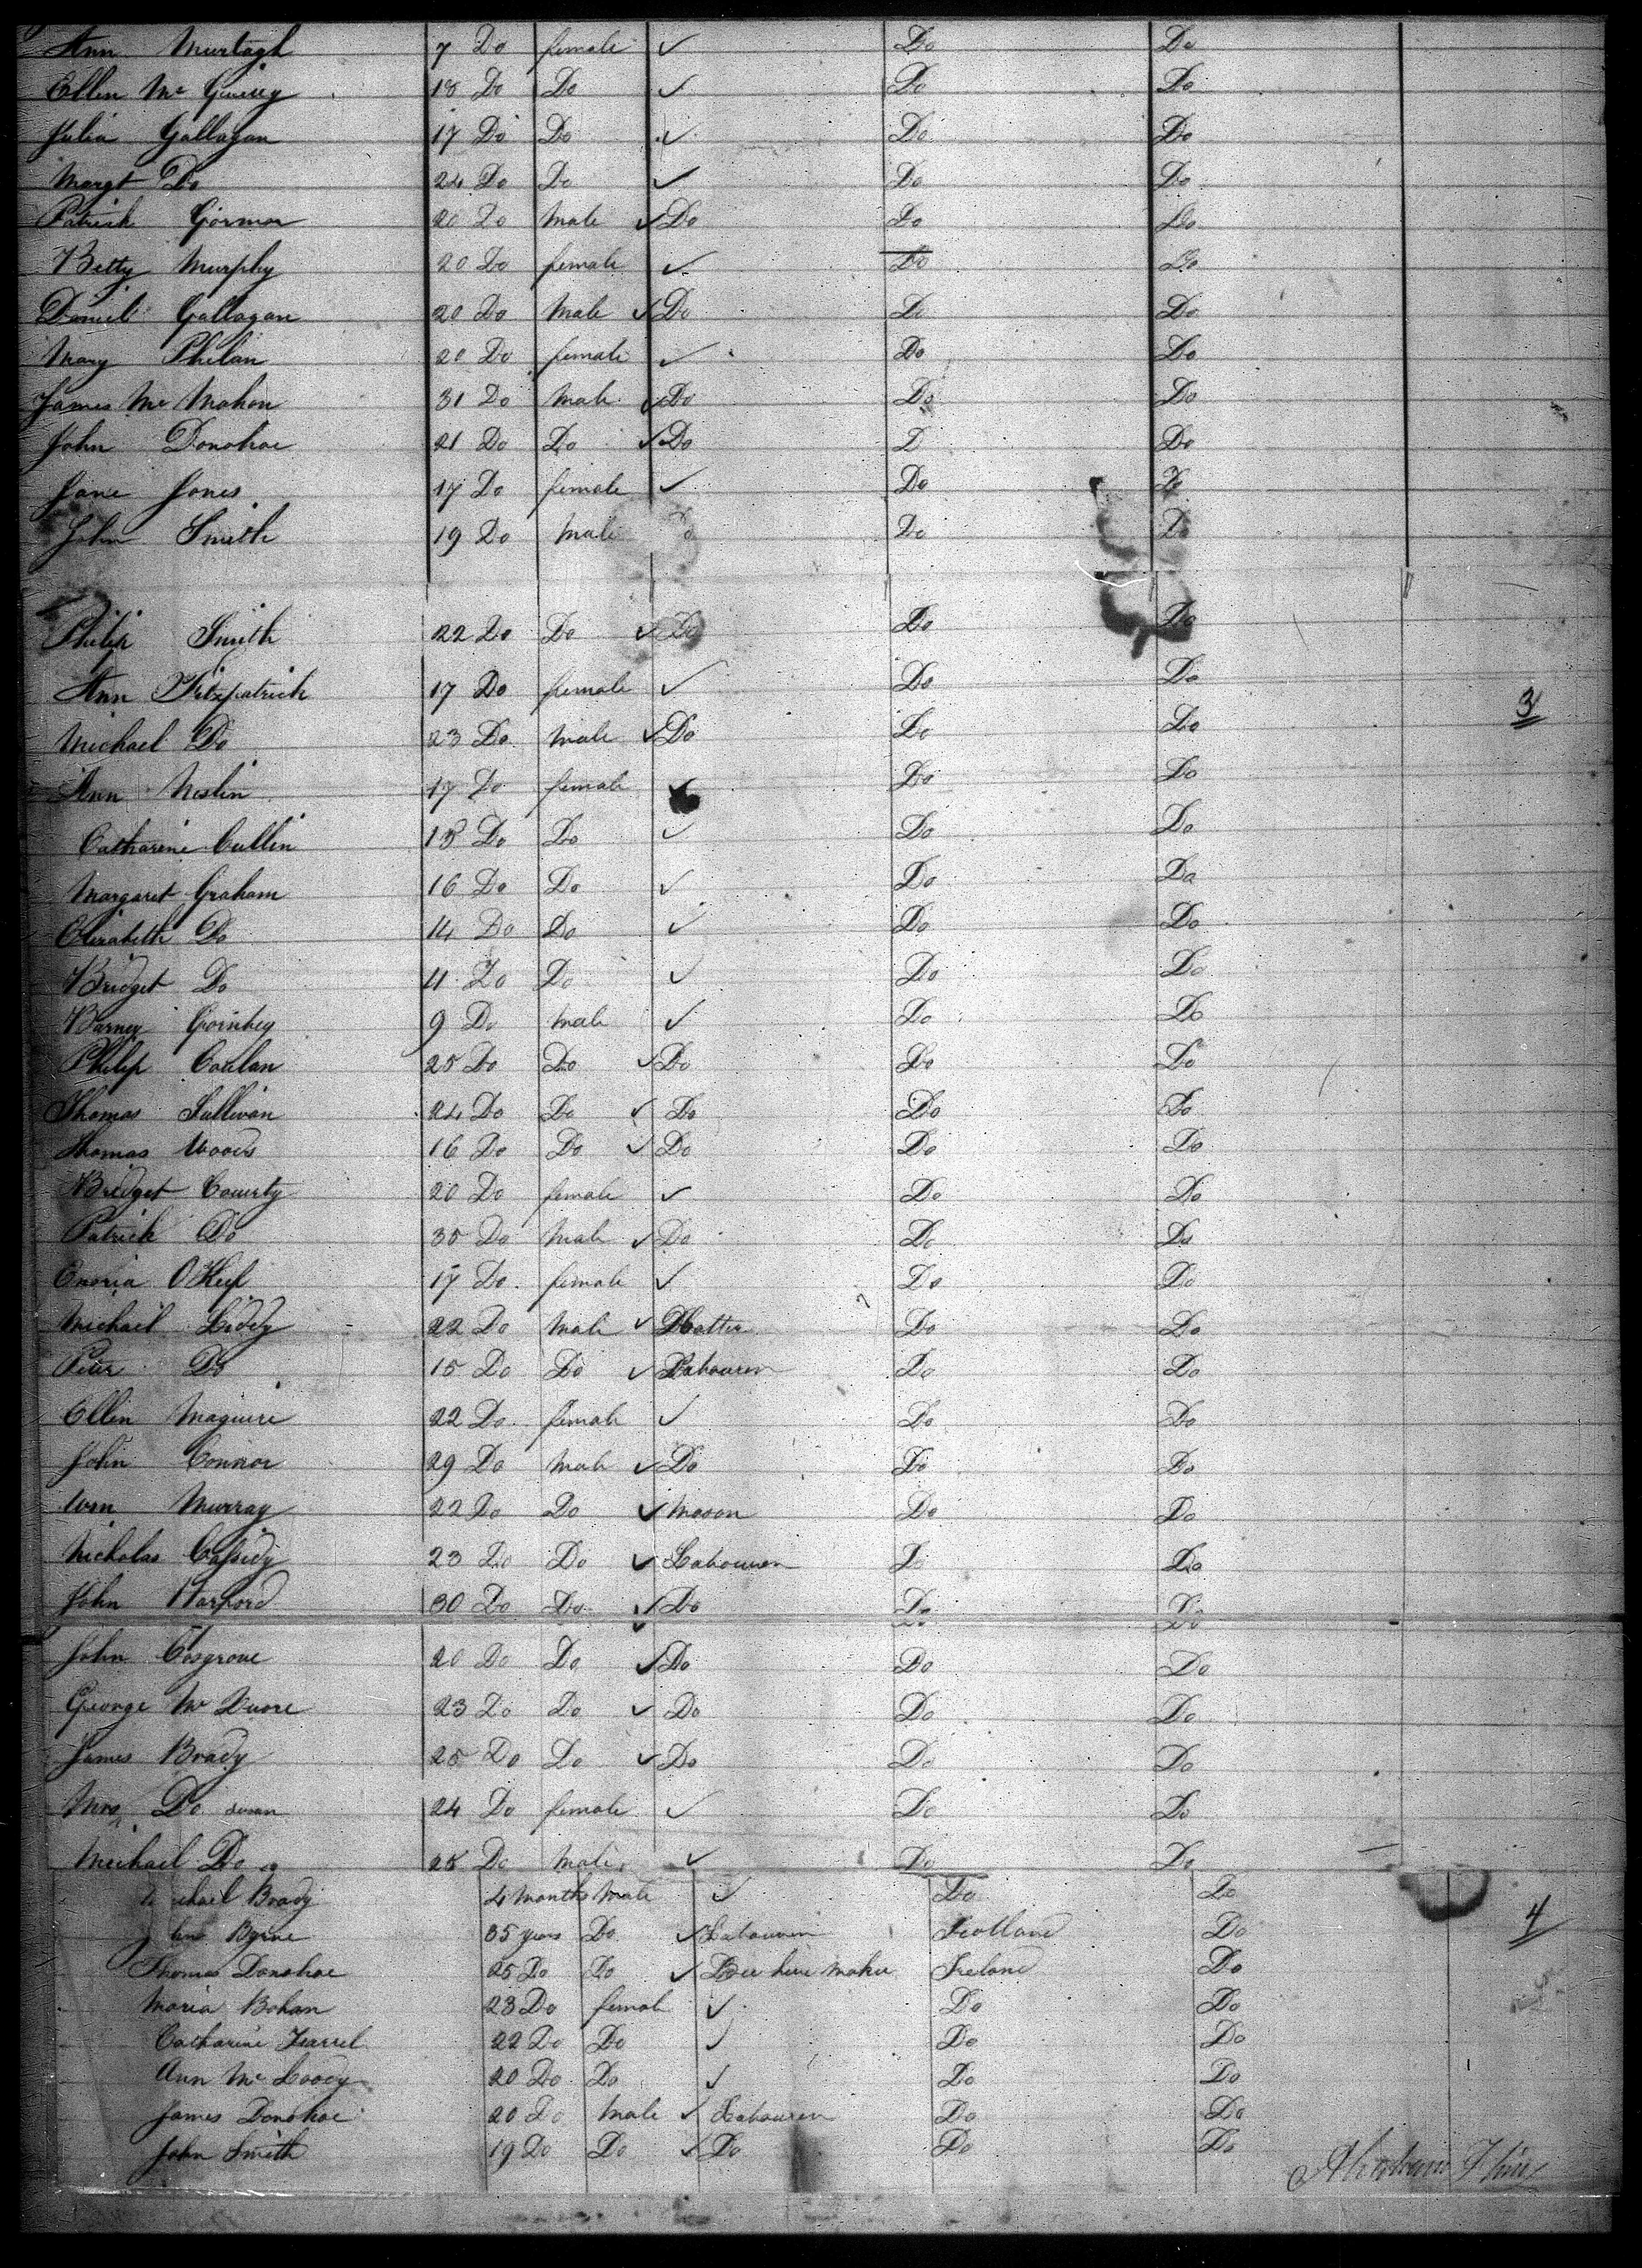 Ann Murtagh 7 Do female ✓ Do Do
Ellen Mc 18 Do Do ✓ Do Do
Julia Gallagan 17 Do Do ✓ Do Do
Margt Do 24 Do Do ✓ Do Do
Patrick Gorman 20 Do Male ✓ Do Do Do
Betty Murphy 20 Do female ✓ Do Do
Daniel Gallagan 20 Do Male ✓ Do Do Do
Mary Phelan 20 Do female ✓ Do Do
James Mc Mahon 31 Do Male ✓ Do Do Do
John Donohoe 21 Do Do ✓ Do D Do
Jane Jones 17 Do female ✓ Do Do
John Smith 19 Do Male Do Do Do
Philip Smith 22 Do Do ✓ Do Do Do
Ann Fitzpatrick 17 Do female ✓ Do Do
3
Michael Do 23 Do Male ✓ Do Do Do
Ann Neslin 17 Do female ✓ Do Do
Catharine Cullin 18 Do Do ✓ Do Do
Margaret Graham 16 Do Do ✓ Do Do
Elizabeth Do 14 Do Do ✓ Do Do
Bridget Do 11 Do Do ✓ Do Do
Barney 9 Do Male ✓ Do Do
Philip 25 Do Do ✓ Do Do Do
Thomas Sullivan 24 Do Do ✓ Do Do Do
Thomas Woods 16 Do Do ✓ Do Do Do
Bridget 20 Do female ✓ Do Do
Patrick Do 35 Do Male ✓ Do Do Do
O'Keef 17 Do female ✓ Do Do
Michael Liddy 22 Do Male ✓ Hatter Do Do
Peter Do 15 Do Do ✓ Labourer Do Do
Ellen Maguire 22 Do female ✓ Do Do
John Connor 29 Do Male ✓ Do Do Do
Wm Murray 22 Do Do ✓ Mason Do Do
Nicholas Cassidy 23 Do Do ✓ Labourer Do Do
John Harford 30 Do Do ✓ Do Do Do
John Cosgrove 20 Do Do ✓ Do Do Do
George Mc 23 Do Do ✓ Do Do Do
James Brady 25 Do Do ✓ Do Do Do
Mrs Do Susan 24 Do female ✓ Do Do
Michael Do 25 Do Male ✓ Do Do
Michael Brady 4 Months Male ✓ Do Do
Byrne 35 years Do ✓ Labourer Scotland Do
4
Thomas Donohoe 25 Do Do ✓ Bee hive maker Ireland Do
Maria Bohan 23 Do female ✓ Do Do
Catharine Farrel 22 Do Do ✓ Do Do
Ann Mc 20 Do Do ✓ Do Do
James Donohoe 20 Do Male ✓ Labourer Do Do
John Smith 19 Do Do ✓ Do Do Do